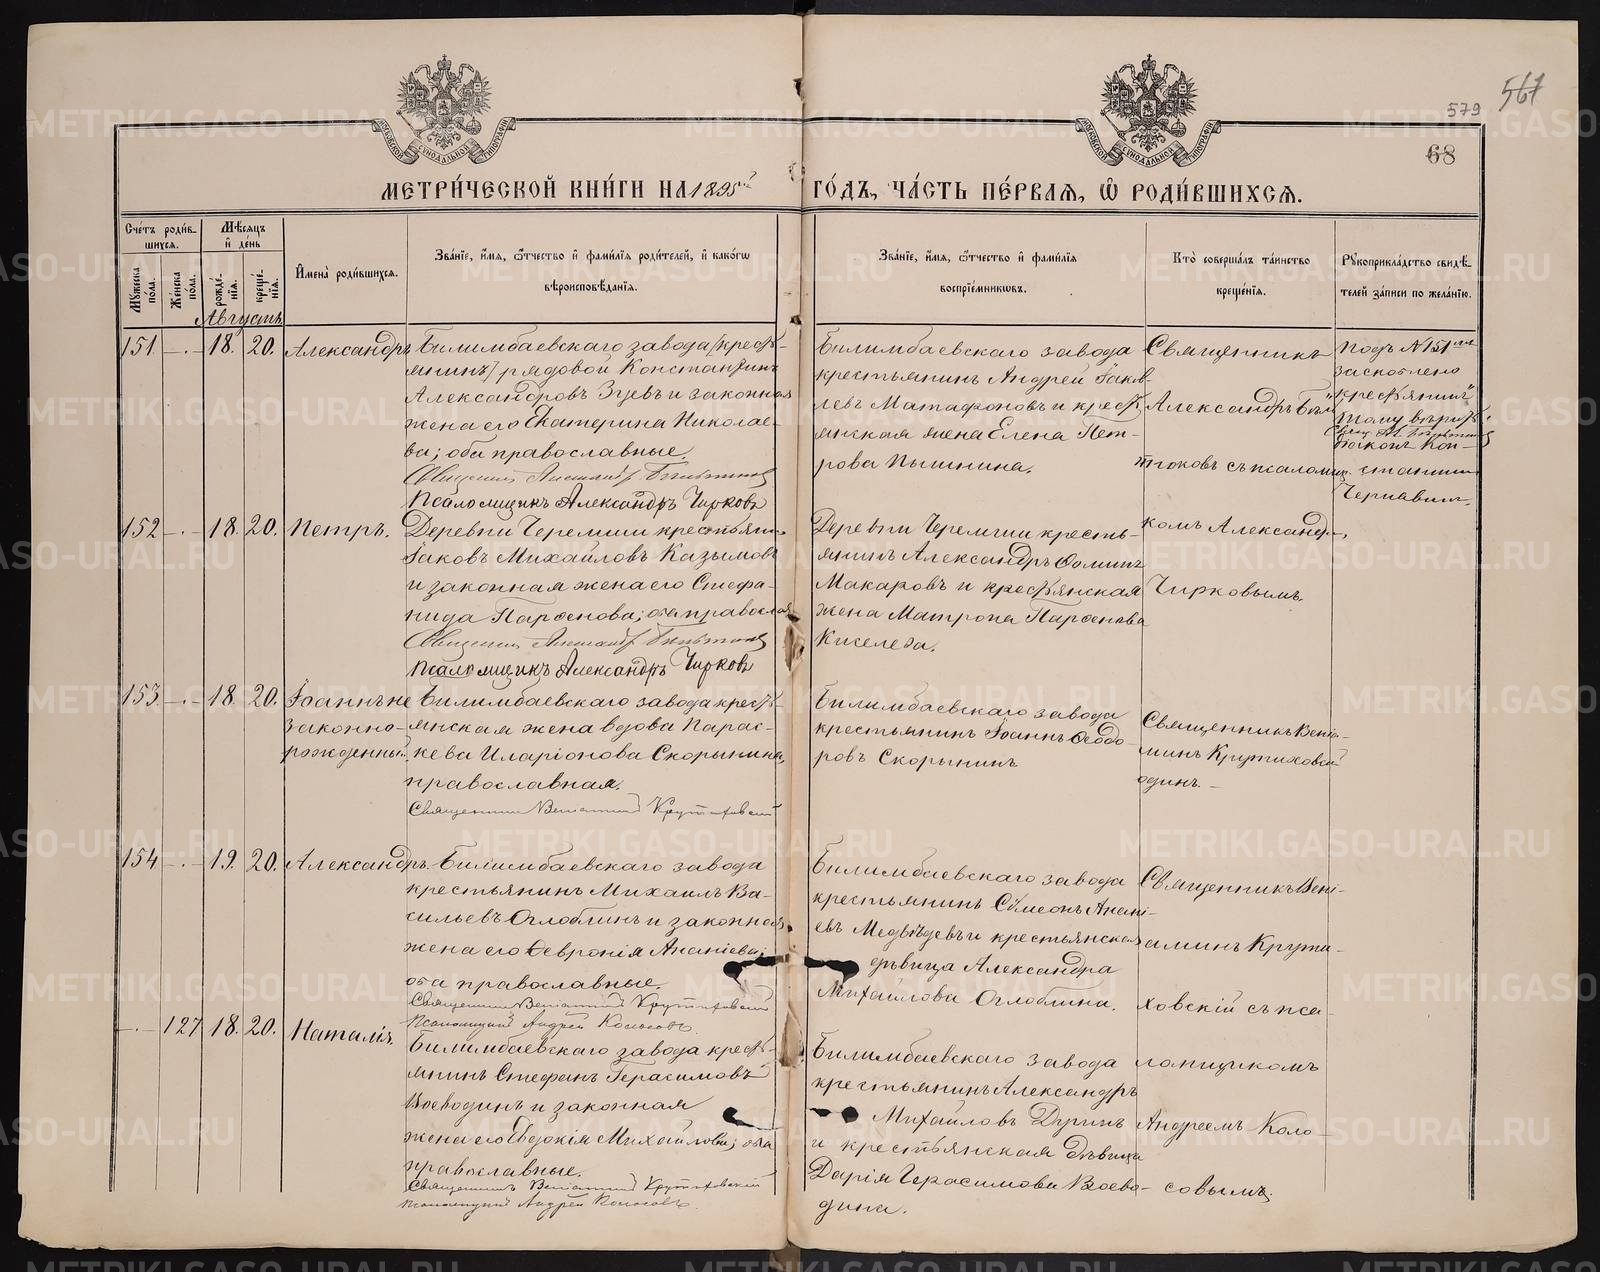 579 567
68
МЕТРИ́ЧЕСКОЙ КНИ́ГИ НА 1895й ГО́ДЪ, ЧА́СТЬ ПЕ́РВАЯ, Ѽ РОДИ́ВШИХСЯ.
Сче́тъ роди́в-
шихся.
Мѣ́сяцъ
и де́нь
Му́жеска по́ла.
Же́нска по́ла.
рожде́нїя.
креще́нїя.
И́мена̀ роди́вшихся.
Зва́нїе, и́мя, ѻ҆́тчество и҆ фами́лїя роди́телей, и҆ како́гѡ
вѣроисповѣ́данїя.
Зва́нїе, и́мя, ѻ҆́тчество и҆ фами́лїя
воспрїе́мникѡвъ.
Кто̀ соверша́лъ та́инство
креще́нїя.
Рꙋкоприкла́дство свидѣ́-
телей за́писи по жела́нїю.
Августъ
151. 18. 20. Александръ
Билимбаевскаго завода /кресть-
янинъ/ рядовой Константинъ
Александровъ Зуевъ и законная
жена его Екатерина Николае-
ва; оба православные.
Псаломщикъ Александръ Чирковъ
Билимбаевскаго завода
крестьянинъ Андрей Іаков-
левъ Матафоновъ и кресть-
янская жена Елена Пет-
рова Пьянина.
Священникъ
Александръ
съ псаломщи-
комъ Александ-
Чирковымъ
Подъ №151мъ
заскоблено
"крестьянинъ"
тому вѣрить
станти
152 18. 20. Петръ.
Деревни Черемши крестьянинъ
Іаковъ Михайловъ Казымовъ
и законная жена его Стефа-
нида Парѳенова; оба православ.
Псаломщикъ Александръ Чирковъ
Деревни Черемши кресть-
янинъ Александръ Ѳоминъ
Макаровъ и крестьянская
жена Матрона Парѳенова
Киселева.
153. 18. 20. Іоаннъ не
законно-
рожденный.
Билимбаевскаго завода кресть-
янская жена вдова Парас-
кева Иларіонова Скорынина,
православная.
Священникъ Веніаминъ Крутиховскій
Билимбаевскаго завода
крестьянинъ Іоаннъ Ѳеодо-
ровъ Скорынинъ
Священникъ Веніа-
минъ Крутиховскій
одинъ.
154. 19. 20. Александръ.
Билимбаевскаго завода
крестьянинъ Михаилъ Ва-
сильевъ Оглоблинъ и законная
жена его Ѳевронія Ананіева;
оба православные.
Священникъ Веніаминъ Крутиховскій
Псаломщикъ Андрей Колосовъ.
Билимбаевскаго завода
крестьянинъ Сѵмеонъ Анані-
евъ Медвѣдевъ и крестьянская
дѣвица Александра
Михайлова Оглоблина.
Священникъ Вені-
аминъ Крути-
ховскій съ пса-
ломщикомъ
Андреемъ Коло-
совымъ.
127 18. 20. Наталія.
Билимбаевскаго завода кресть-
янинъ Стефанъ Герасимовъ
Воеводинъ и законная
жена его Евдокія Михайлова; оба
православные.
Священникъ Веніаминъ Крутиховскій
Псаломщикъ Андрей Колосовъ.
Билимбаевскаго завода
крестьянинъ Александръ
Михайловъ Дуринъ
и крестьянская дѣвица
Дарія Герасимова Воево-
дина.